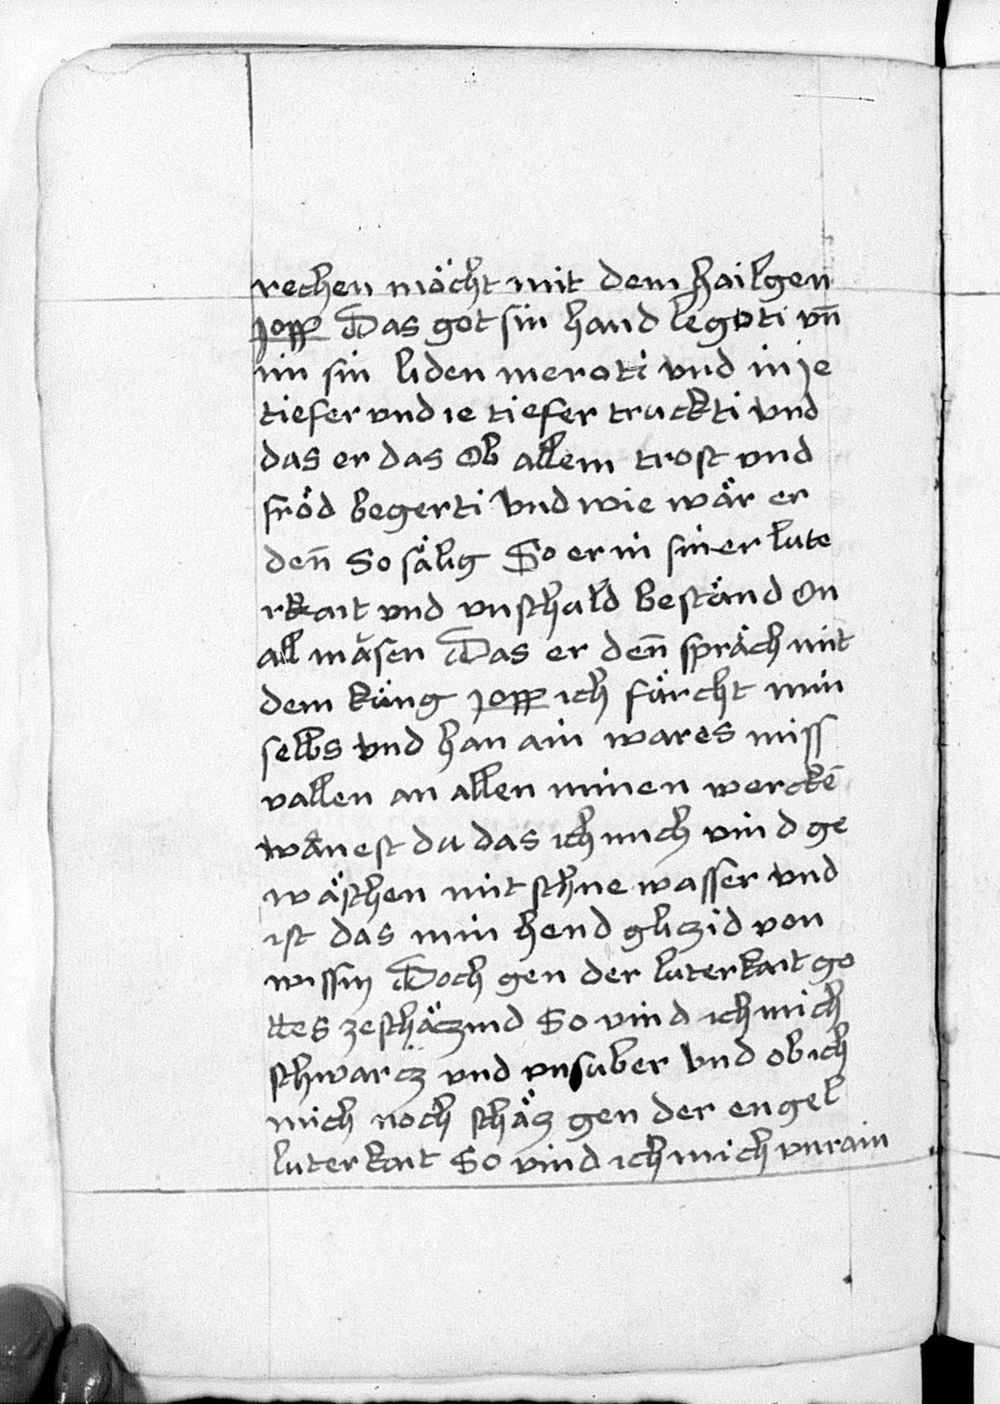 rechen möcht mit dem hailgen
Jopp Das got sin hand legoti vn̄
im sin liden meroti vnd in je
tiefer vnd ie tiefer truckti vnd
das er das Ob allem trost vnd
fröd begerti Vnd wie wär er
den̄ So sälig So er in siner lute
rkait vnd vnschuld beständ On
all mäsen Das er den̄ spräch mit
dem küng Jopp ich fürcht min
selbs vnd han ain wares miss
vallen an allen minen werckē
wänest du das ich mich vind ge
wäschen mit schne wasser vnd
ist das min hend gliczid von
wissin Doch gen der luterkait go
ttes zeschäczind So vind ich mich
schwarcz vnd vnsuber Vnd ob ich
mich noch schäcz gen der engel
luterkait So vind ich mich vnrain